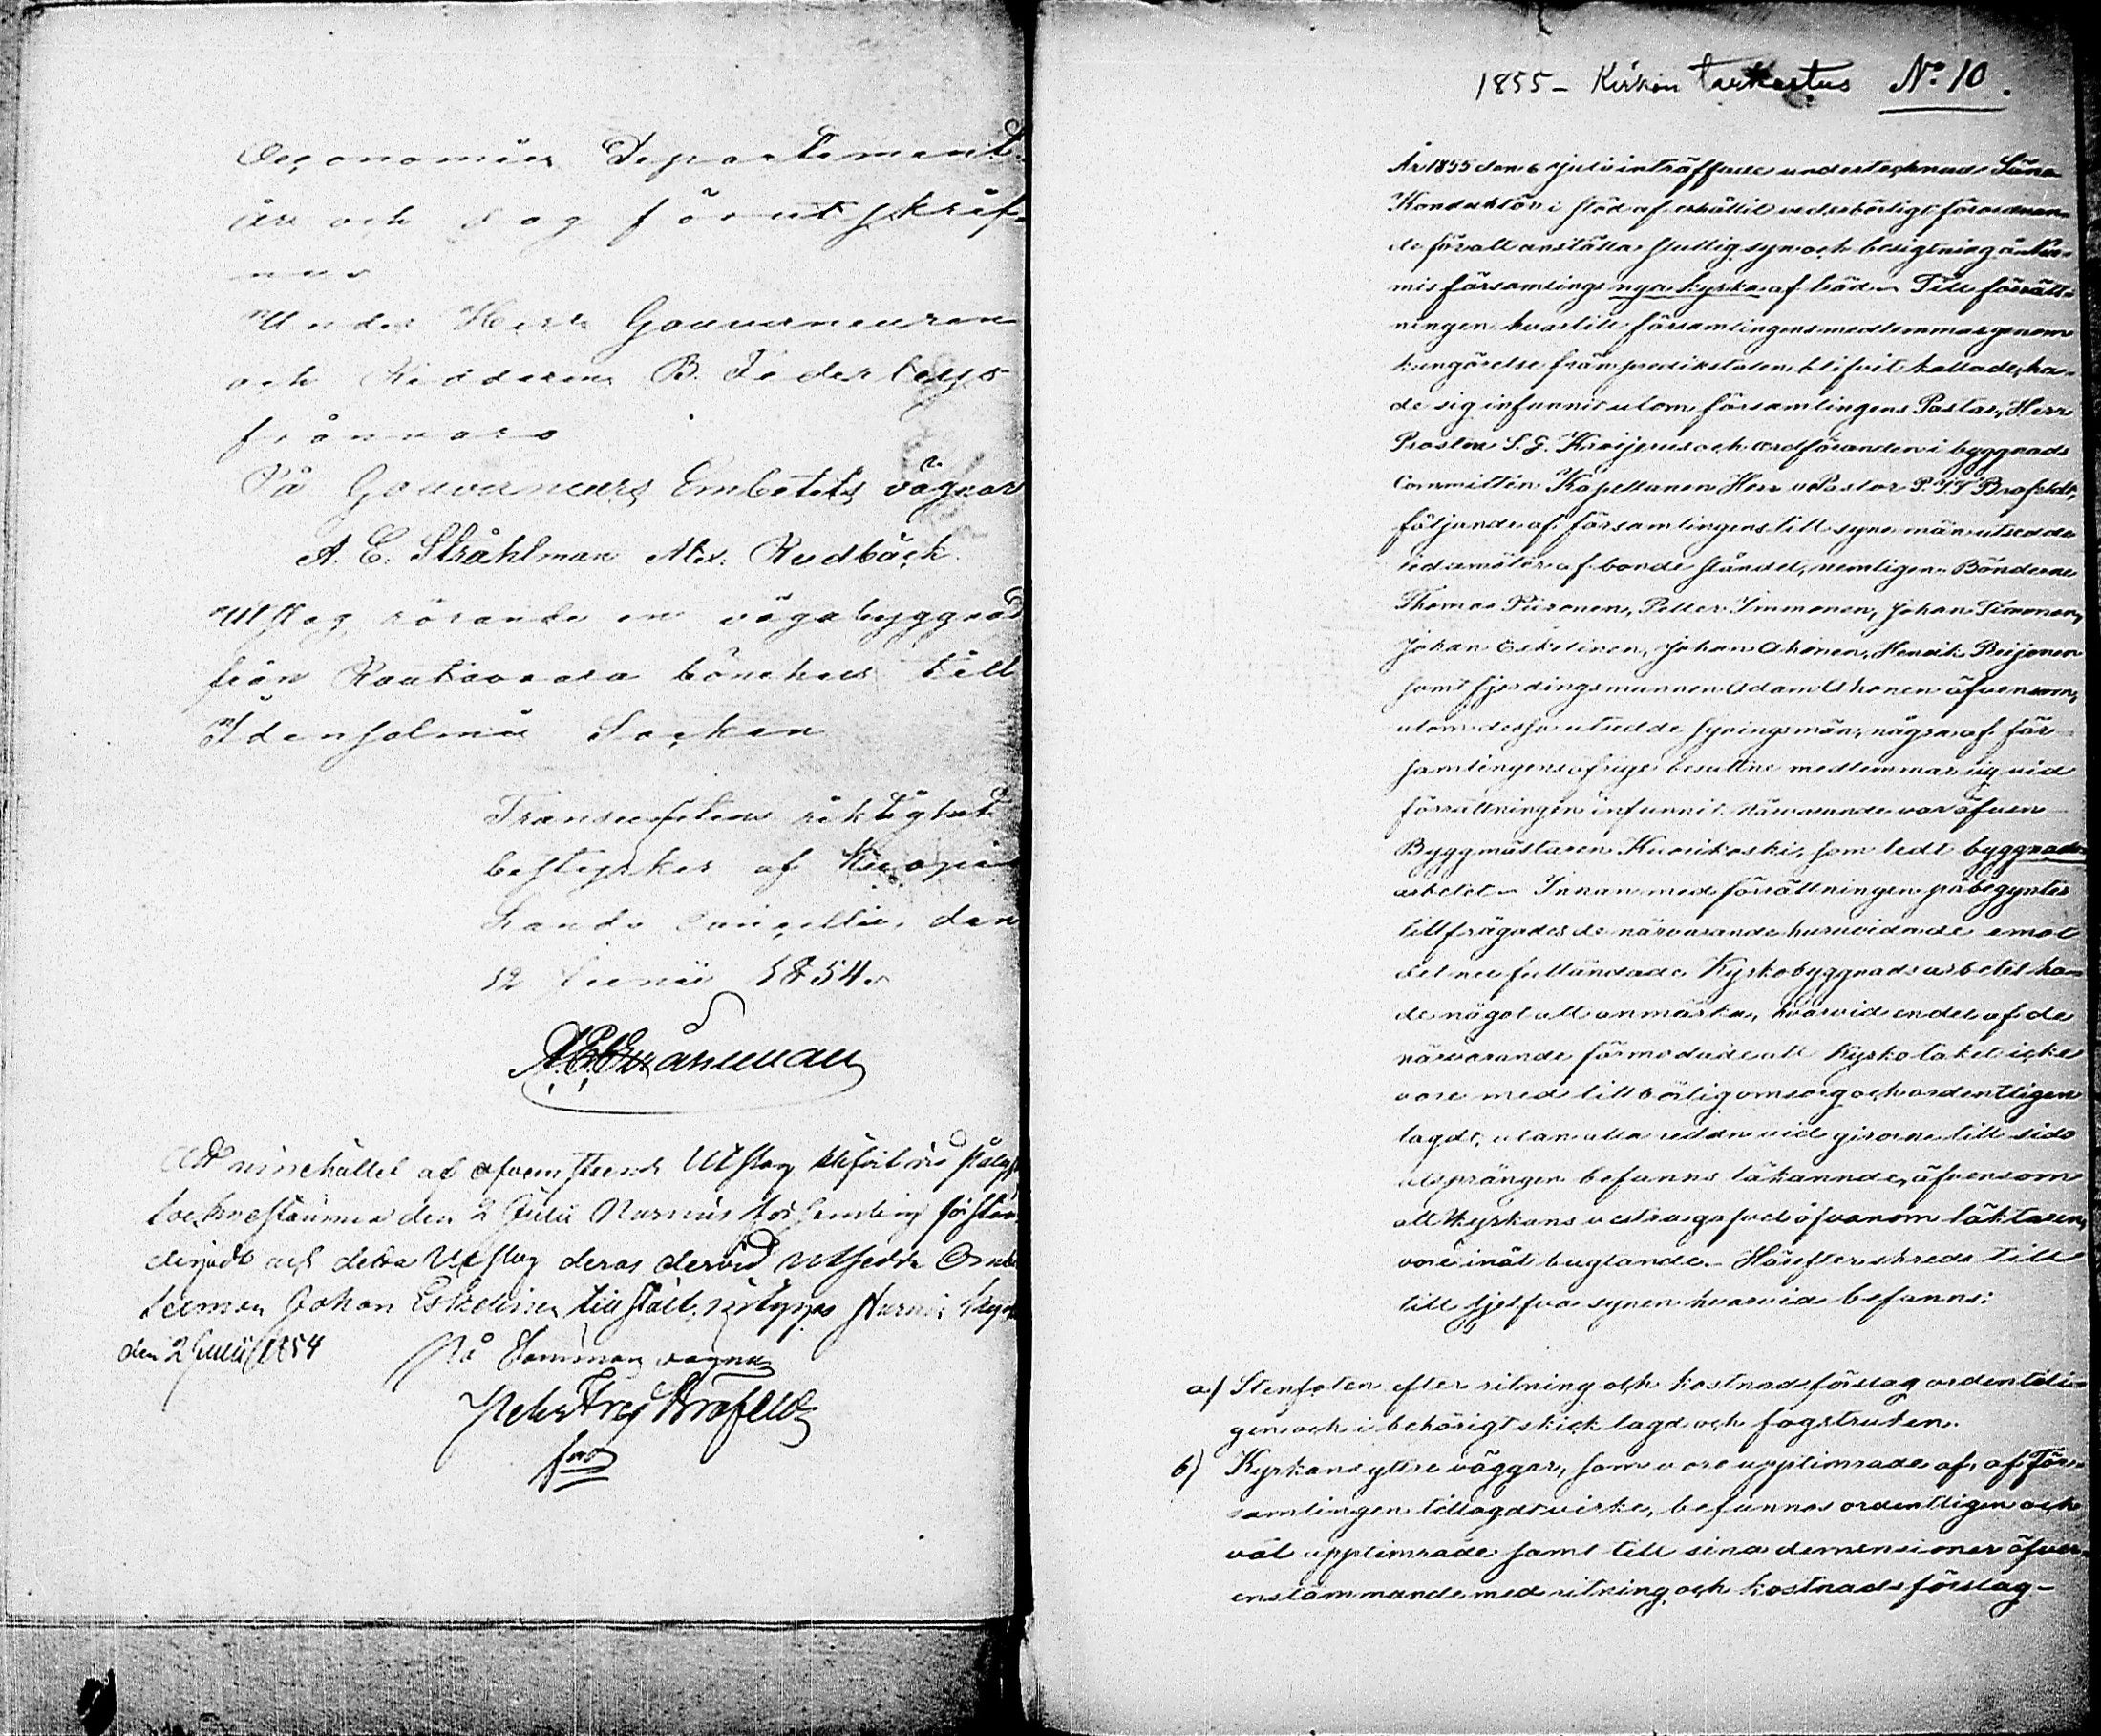 Oeconomiæ Departement
år och dag förutskrif-
na.
Under Herr Gouverneuren
och Riddaren B. Federleys
frånvaro
På Gouverneurs Embetets vägnar
A. E. Stråhlman Alex. Rudbäck.
Utslag rörande en vägabyggnad
från Rautavaara bönehus till
Idensalmi Socken
Transumtens riktighet
bestyrker af Kuopio
Lands Cancellie, den
12 Junii 1854.
A. E. Stråhlman
Att innehållet af ofvanstående Utslag blifvit vid
socknestämma den 2 Julii Nurmis församling förstån-
digadt och detta Utslag deras dervid utsedde Ombu
Johan Eskelinen tillstäldt, intygas Nurmis
den 2 Julii 1854
På Sammans vägnar
Petr Brofeldt
1855 – Kirkon tarkastus No. 10.
År 1855 den 6 Julii inträffade undertecknad Läne
Konduktör i stöd af erhållit vederbörligt förordnan-
de för att anställa slutlig syn och besigtning å Nur-
mis församlings nya kyrka af träd – Till förrätt-
ningen hvartill församlingens medlemmar genom
kungörelse från predikstolen blifvit kallade, ha-
de sig infunnit utom församlingens Pastor, Herr
Prosten S. G. Kroijerus och ordföranden i byggnads
Committén Kapellanen Herr vPastor P. F. Brofeldt,
följande af församlingens till synemän utsedda
ledamöter af bonde ståndet, nemligen Bönderne
Thomas Piironen, Petter Immonen, Johan Timonen,
Johan Eskelinen, Johan Ahonen, Henrik Reijonen
samt fjerdingsmannen Adam Ahonen äfvensom,
utom dessa utsedde syningsmän, några af för-
samlingens öfrige besuttne medlemmar sig vid
förrättningen infunnit. Närvarande var äfven
Byggmästaren Kuorikoski, som ledt byggnads
arbetet – Innan med förrättningen påbegyntes
tillfrågades de närvarande huruvida de emot
det nu fulländade Kyrkobyggnadsarbetet ha-
de något att anmärka, hvarvid en del af de
närvarande förmodade att Kyrkotaket icke
vore med tillbörlig omsorg och ordentligen
lagdt, utan alla redan vid girorne till sido
utsprången befanns läkannde, äfvensom
att Kyrkans vestra gafvel ofvanom läktaren,
vore inåt buglande. Härefter skreds till
till sjelfva synen hvarvid befanns:
a) Stenfoten efter ritning och kostnadsförslag ordentli-
gen och i behörigt skick lagd och fogstruken.
b) Kyrkans yttre väggar, som vore upptimrade af, af För-
samlingen tillagdt virke, befunnos ordentligen och
väl upptimrade samt till sina demensioner öfver-
enstämmande med ritning och kostnadsförslag –